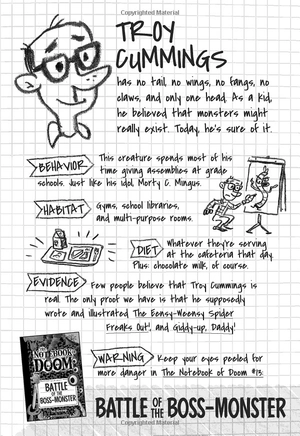 Copyrighted Material
TROY
CUMMINGS
has no tail, no wings, no fangs, no
claws, and only one head. As a kid,
he believed that monsters might
really exist. Today, he's sure of it.
BEHAVIOR
This creature spends most of his
time giving assemblies at grade
schools. Just like his idol, Morty C. Mingus.
HABITAT
Gyms, school libraries,
and multi-purpose rooms.
DIET
Whatever they're serving
at the cafeteria that day.
Plus: chocolate milk, of course.
EVIDENCE
Few people believe that Troy Cummings is
real. The only proof we have is that he supposedly
wrote and illustrated The Eensy-Weensy Spider
Freaks Out!, and Giddy-up, Daddy!
WARNING
Keep your eyes peeled for
more danger in The Notebook of Doom #13:
NOTEBOOK
DOOM
BATTLE
OF THE
BOSS-MONSTER
BATTLE OF THE BOSS-MONSTER
Copyrighted Material